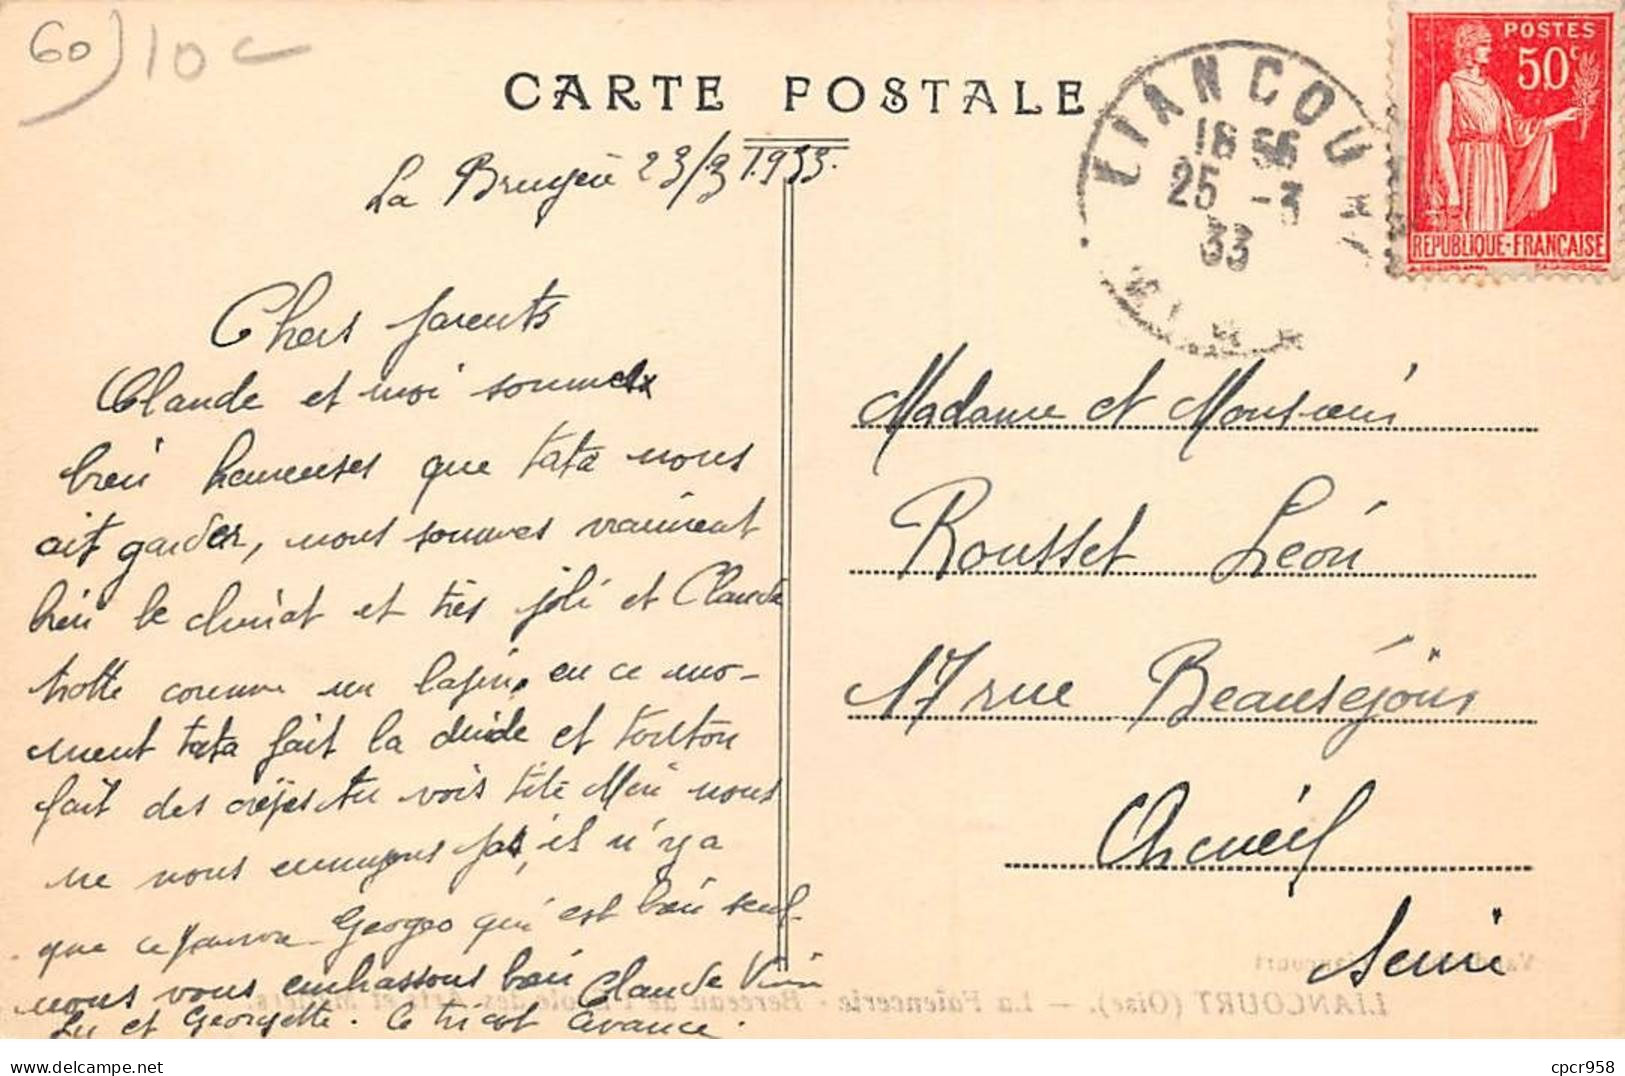 60
10 c
CARTE POSTALE
La Bruyère 23/3 1933.
LIANCOURT
18 56
25 -3
33
POSTES
50c
REPUBLIQUE-FRANCAISE
Chers parents
Claude et moi sommes
bien heureuses que tata nous
ait garder, nous sommes vraiment
bien le climat et très joli et Claude
trotte comme un lapin, en ce mo-
ment tata fait la dinde et tonton
fait des crêpes tu vois tite Mère nous
ne nous ennuyons pas, il n'y a
que ce pauvre Georges qui est bien seul
nous vous embrassons bien Claude
Lu et Georgette. Ce tricot avance.
Madame et Monsieur
Rousset Léon
17 rue Beauséjour
Arcueil
Seine
LIANCOURT (Oise). — La Faïencerie - Berceau de l'Ecole des Arts et Métiers.
cpcr958